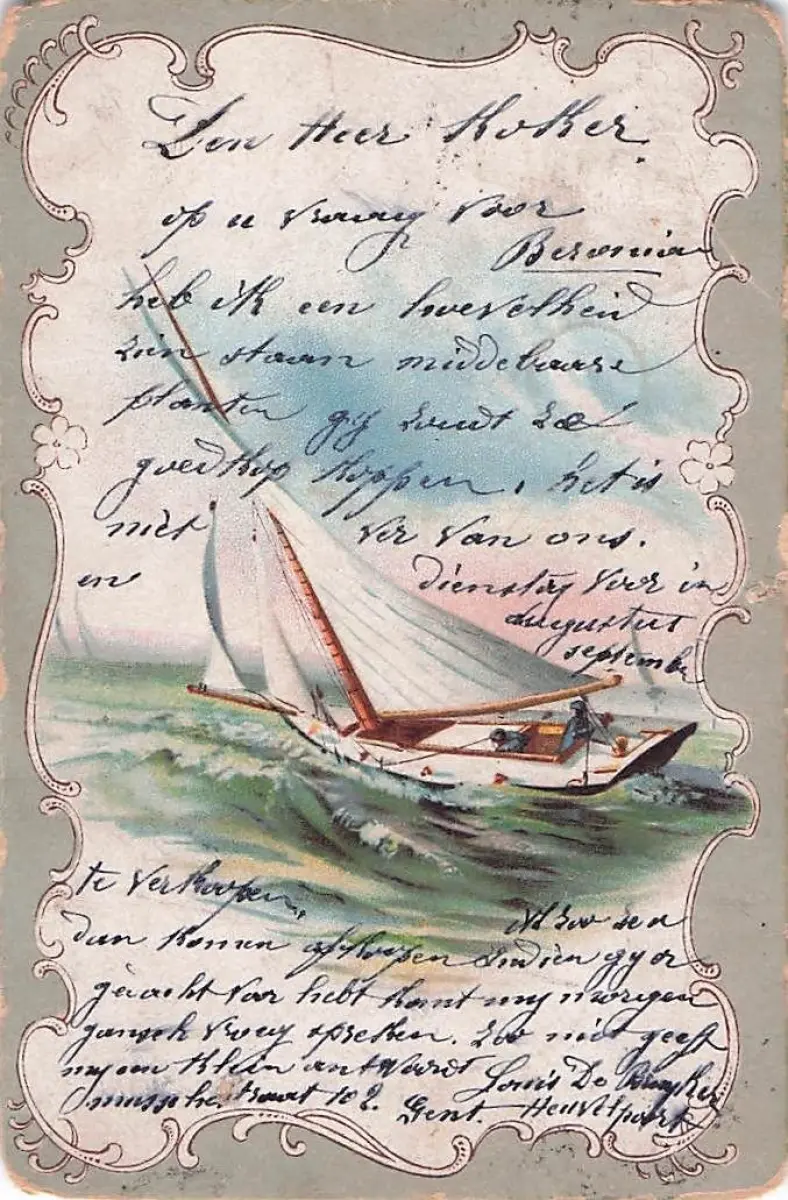 Den Heer Koker
op u vraag voor
Beronia
heb ik een hoevelheid
zien staan middelbaare
planten gij zoudt ze
goedkop koppen, het is
niet ver van ons.
en dienstag voor in
augustus
septembe
te verkoopen,
ik zoo ze u
dan komen afkoopen indien gy er
gedacht voor hebt komt my morgen
gansch vroeg spreken. zoo niet geeft
my een klein antwoord Louis De Bruyker
straat 102. Gent. Heuvelpoort